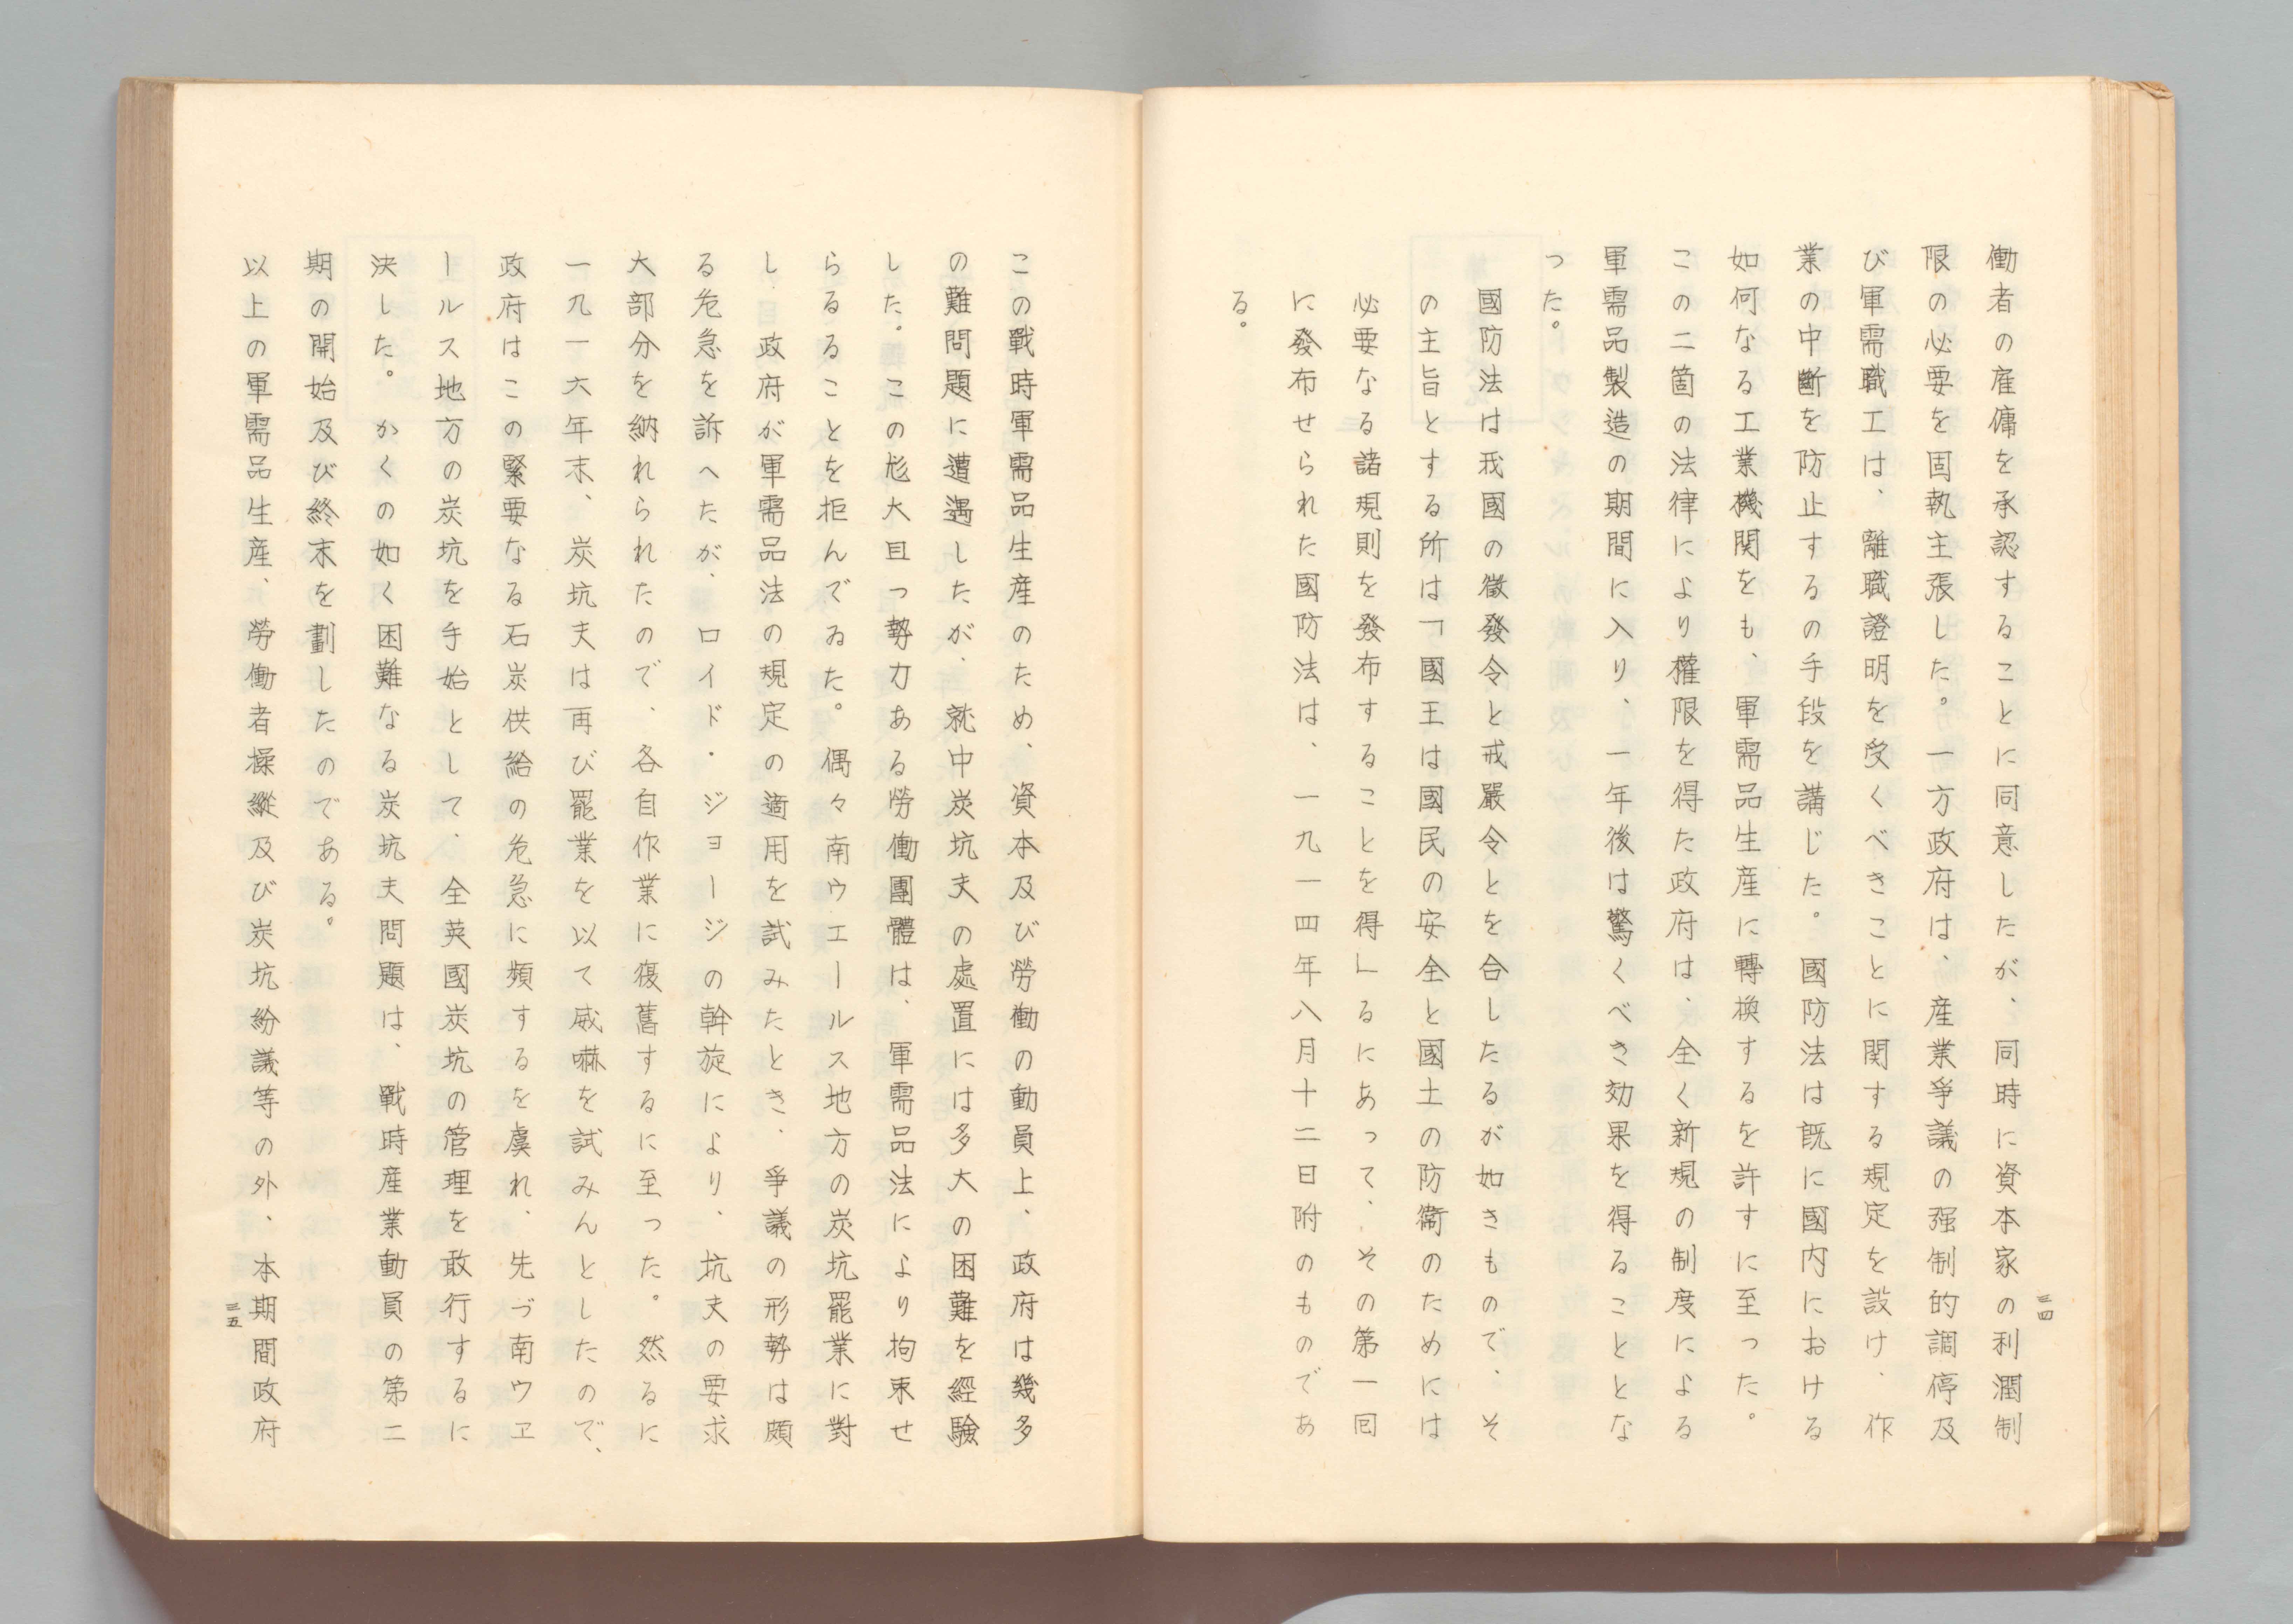 働者の雇傭を承認することに同意したが、同時に資本家の利潤制
限の必要を固執主張した。一方政府は、産業爭議の强制的調停及
び軍需職工は、離職證明を受くべきことに関する規定を設け、作
業の中斷を防止するの手段を講じた。國防法は既に國内における
如何なる工業機関をも、軍需品生産に轉換するを許すに至った。
この二箇の法律により權限を得た政府は、全く新規の制度による
軍需品製造の期間に入り、一年後は驚くべき効果を得ることとな
った。
國防法は我國の徵發令と戒嚴令とを合したるが如きもので、そ
の主旨とする所は「國王は國民の安全と國土の防衞のためには
必要なる諸規則を發布することを得」るにあって、その第一回
に發布せられた國防法は、一九一四年八月十二日附のものであ
る。
三四
この戰時軍需品生産のため、資本及び勞働の動員上、政府は幾多
の難問題に遭遇したが、就中炭坑夫の處置には多大の困難を經驗
した。この尨大且つ勢力ある勞働團體は、軍需品法により拘束せ
らるることを拒んでゐた。偶々南ウエールス地方の炭坑罷業に對
し、政府が軍需品法の規定の適用を試みたとき、爭議の形勢は頗
る危急を訴へたが、ロイド・ジョージの幹旋により、坑夫の要求
大部分を納れられたので、各自作業に復舊するに至った。然るに
一九一六年末、炭坑夫は再び罷業を以て威嚇を試みんとしたので、
政府はこの緊要なる石炭供給の危急に頻するを虞れ、先づ南ウエ
ールス地方の炭坑を手始として、全英國炭坑の管理を敢行するに
決した。かくの如く困難なる炭坑夫問題は、戰時産業動員の第二
期の開始及び終末を劃したのである。
以上の軍需品生産、勞働者操縱及び炭坑紛議等の外、本期間政府
三五